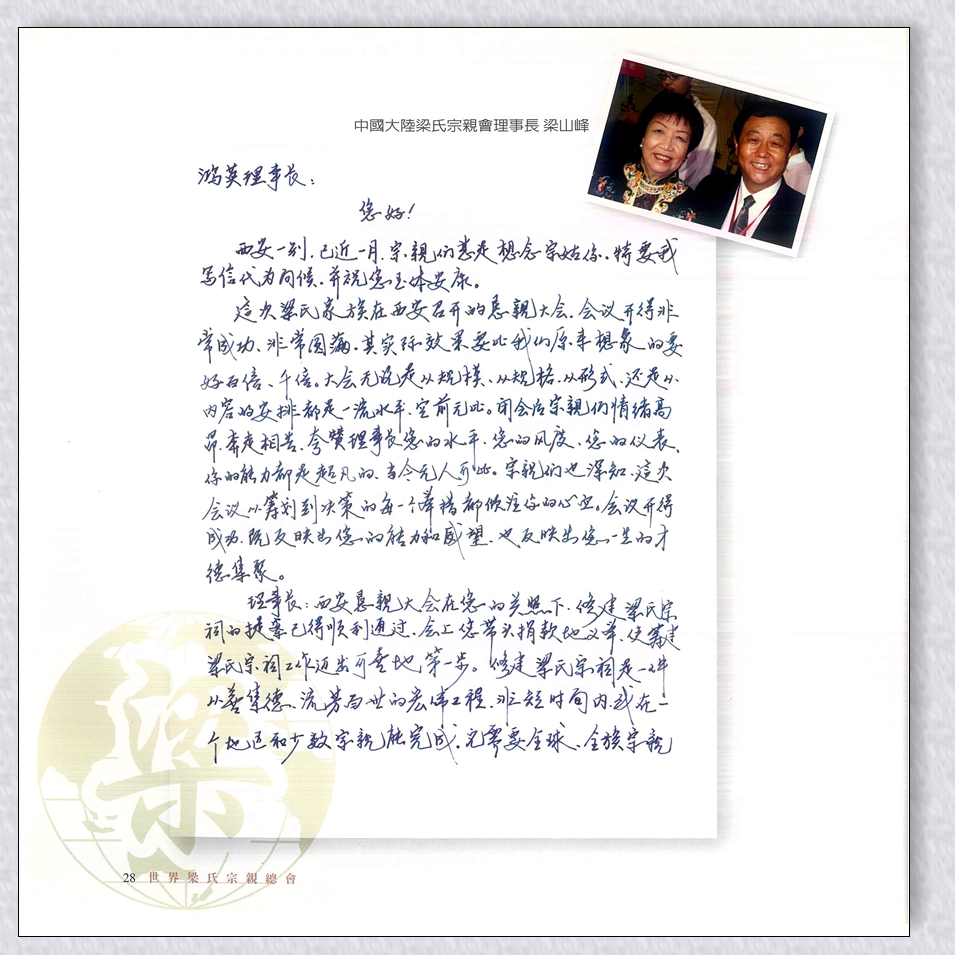 中國大陸梁氏宗親會理事長 梁山峰
鸿英理事长：
您好！
西安一别，已近一月，宗亲们老是想念宗姑你，特要我
写信代为问候，并祝您玉体安康。
这次梁氏家族在西安召开的恳親大会，会议开得非
常成功、非常圆满，其实际效果要比我们原来想象的要
好百倍、千倍。大会无论是从规模、从规格、从形式、还是从
内容的安排都是一流水平，空前无比。闭会后宗親们情绪高
昂，奔走相告，夸赞理事长您的水平、您的风度、您的仪表、
你的能力都是超凡的，当今无人可比。宗親们也深知，这次
会议从筹划到决策的每一个举措都倾注你的心血。会议开得
成功，既反映出您的能力和威望，也反映出您一生的才
德集聚。
理事长：西安恳親大会在您的关照下，修建梁氏宗
祠的提案已得顺利通过，会上您带头捐款地义举，使筹建
梁氏宗祠工作迈出可喜地第一步。修建梁氏宗祠是一件
从善集德、流芳百世的宏伟工程，非短时间内，或在一
个地区和少数宗親能完成，尤需要全球、全族宗親
梁
28 世界梁氏宗親總會